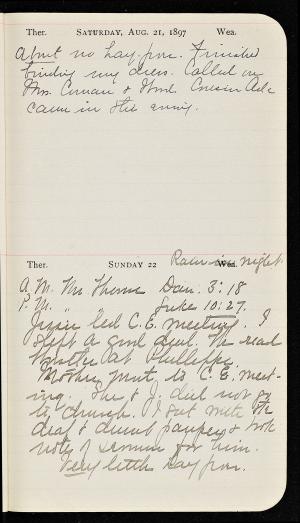 Ther. SATURDAY, AUG. 21, 1897 Wea.
About no hay fever. Finished
binding my dress. Called on
Mrs. & Cousin Ade
came in the evening.
Ther. SUNDAY 22 Wea. Rain in night.
A.M. Mr Thorne Dan. 3:18
P.M. " Luke 10:27.
Jessie led C.E. meeting. I
slept a good deal. We read
at
Mother went to C.E. meet-
ing. She & J. did not go
to church. I sat with the
deaf & dumb & took
notes of sermon for him.
Very little hay fever.